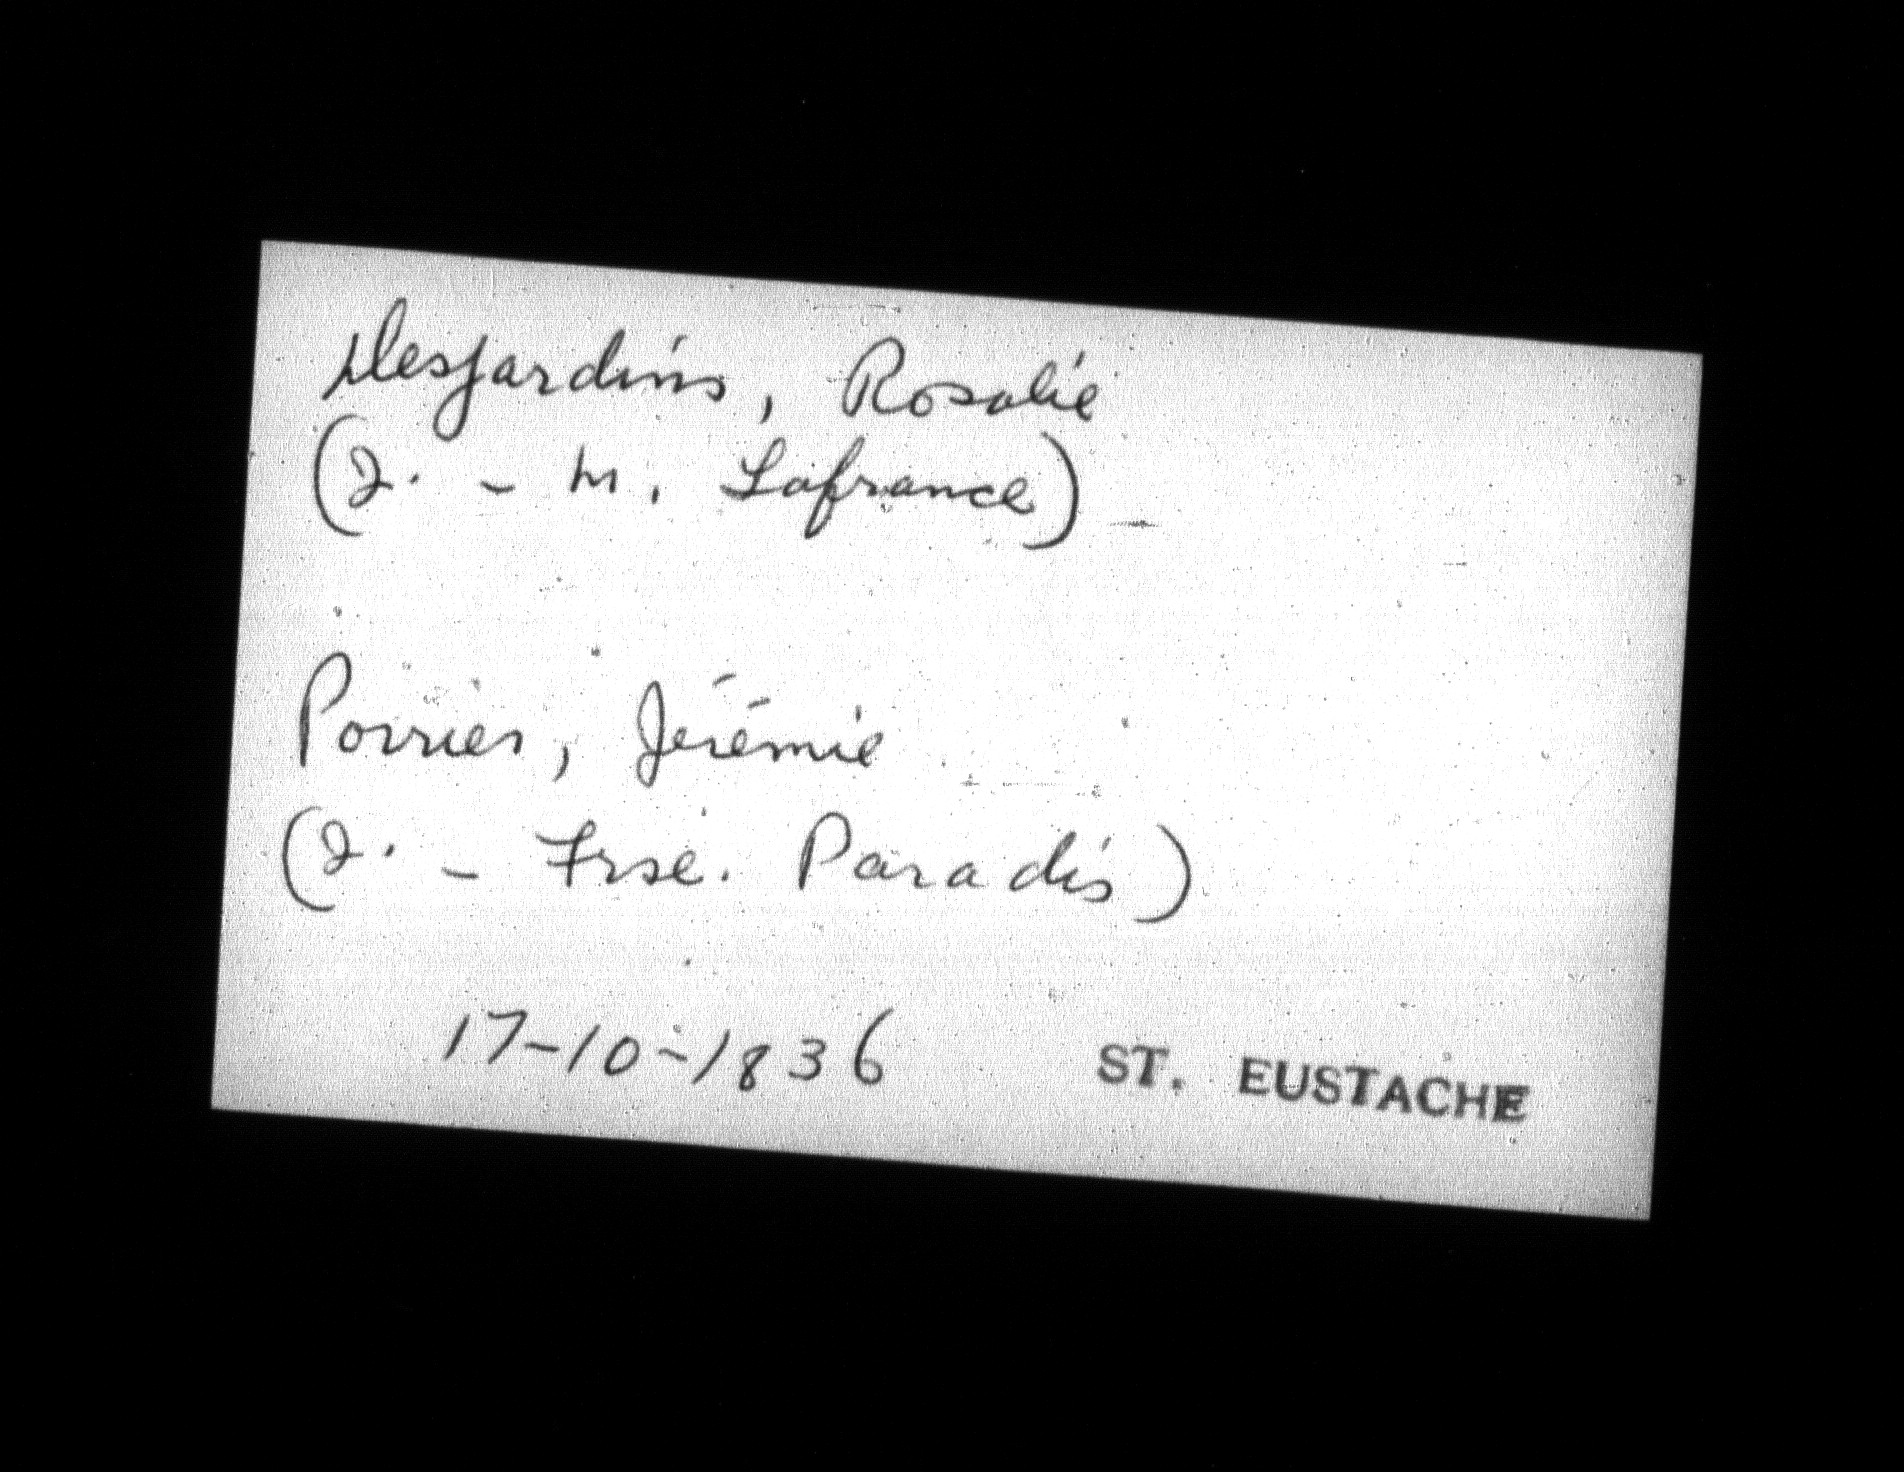 Desjardins, Rosalie
(J. - M. Lafrance)
Poirier, Jérémie
(J. - Frse. Paradis)
17-10-1836 ST. EUSTACHE